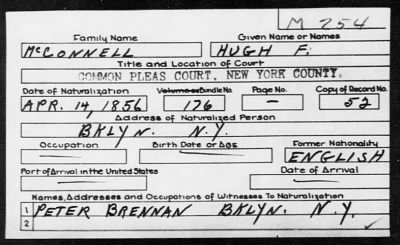 M 254
Family Name Given Name or Names
McCONNELL HUGH F.
Title and Location of Court
COMMON PLEAS COURT, NEW YORK COUNTY.
Date of Naturalization Volume or Bundle No. Page No. Copy of Record No.
APR. 14, 1856 176 — 52
Address of Naturalized Person
BKLYN. N.Y.
Occupation Birth Date or Age Former Nationality
ENGLISH
Port of Arrival in the United States Date of Arrival
Names, Addresses and Occupations of Witnesses To Naturalization
1 PETER BRENNAN BKLYN. N.Y.
2